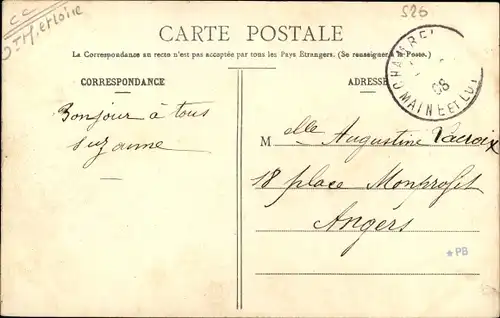 CC
Mt et Loire
526
CARTE POSTALE
La Correspondance au recto n'est pas acceptée par tous les Pays Étrangers. (Se renseigner à la Poste.)
CORRESPONDANCE
ADRESSE
MAINE ET LOI
08
Bonjour à tous
Suzanne
Melle Augustine Lacroix
18 place Monprofit
Angers
*PB